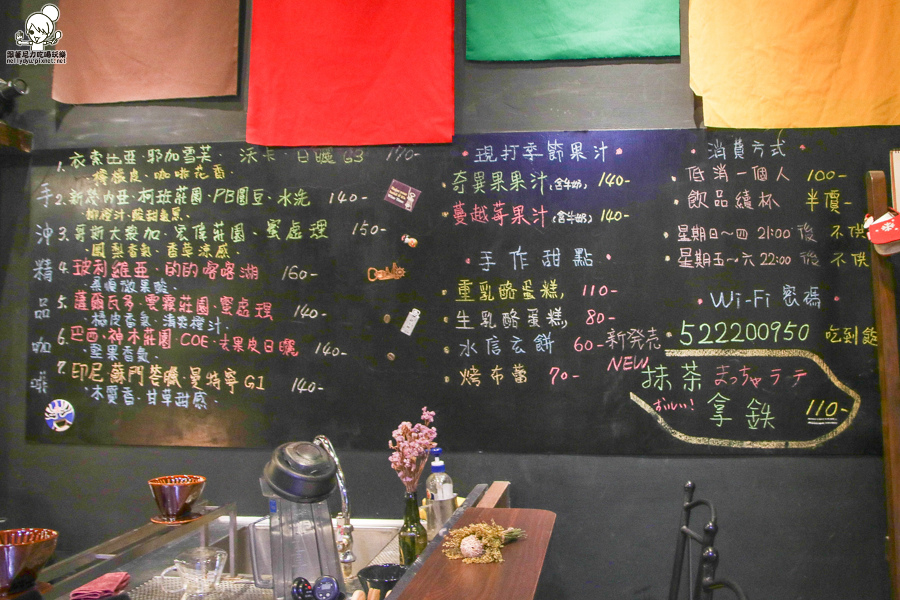 跟著尼力吃喝玩樂
nellydyu.pixnet.net
手沖精品咖啡
1. 衣索比亞·耶加雪菲 沃卡 日曬 G3 170-
檸檬皮·咖啡花香
2. 新幾內亞·柯班莊園·PB圓豆·水洗 140-
3. 哥斯大黎加·宏偉莊園·蜜處理 150-
鳳梨香氣·香草涼感·
4. 玻利維亞·的的喀喀湖 160-
柔順·微果酸·
5. 薩爾瓦多·雲霧莊園·蜜處理 140-
橘皮香氣·清爽橙汁·
6. 巴西·神木莊園·COE·去果皮日曬 140-
堅果香氣·
7. 印尼·蘇門答臘·曼特寧 G1 140-
木質香·甘草甜感·
現打季節果汁
奇異果果汁(含牛奶) 140-
蔓越莓果汁(含牛奶) 140-
手作甜點
重乳酪蛋糕, 110-
生乳酪蛋糕, 80-
水信玄餅 60-
烤布蕾 70-
消費方式
低消一個人 100-
飲品續杯 半價-
星期日~四 21:00 後 不供
星期五~六 22:00 後 不供
Wi-Fi 密碼
522200950 吃到飽
新発売
NEW
抹茶 まっちゃラテ
おいしい! 拿鉄 110-